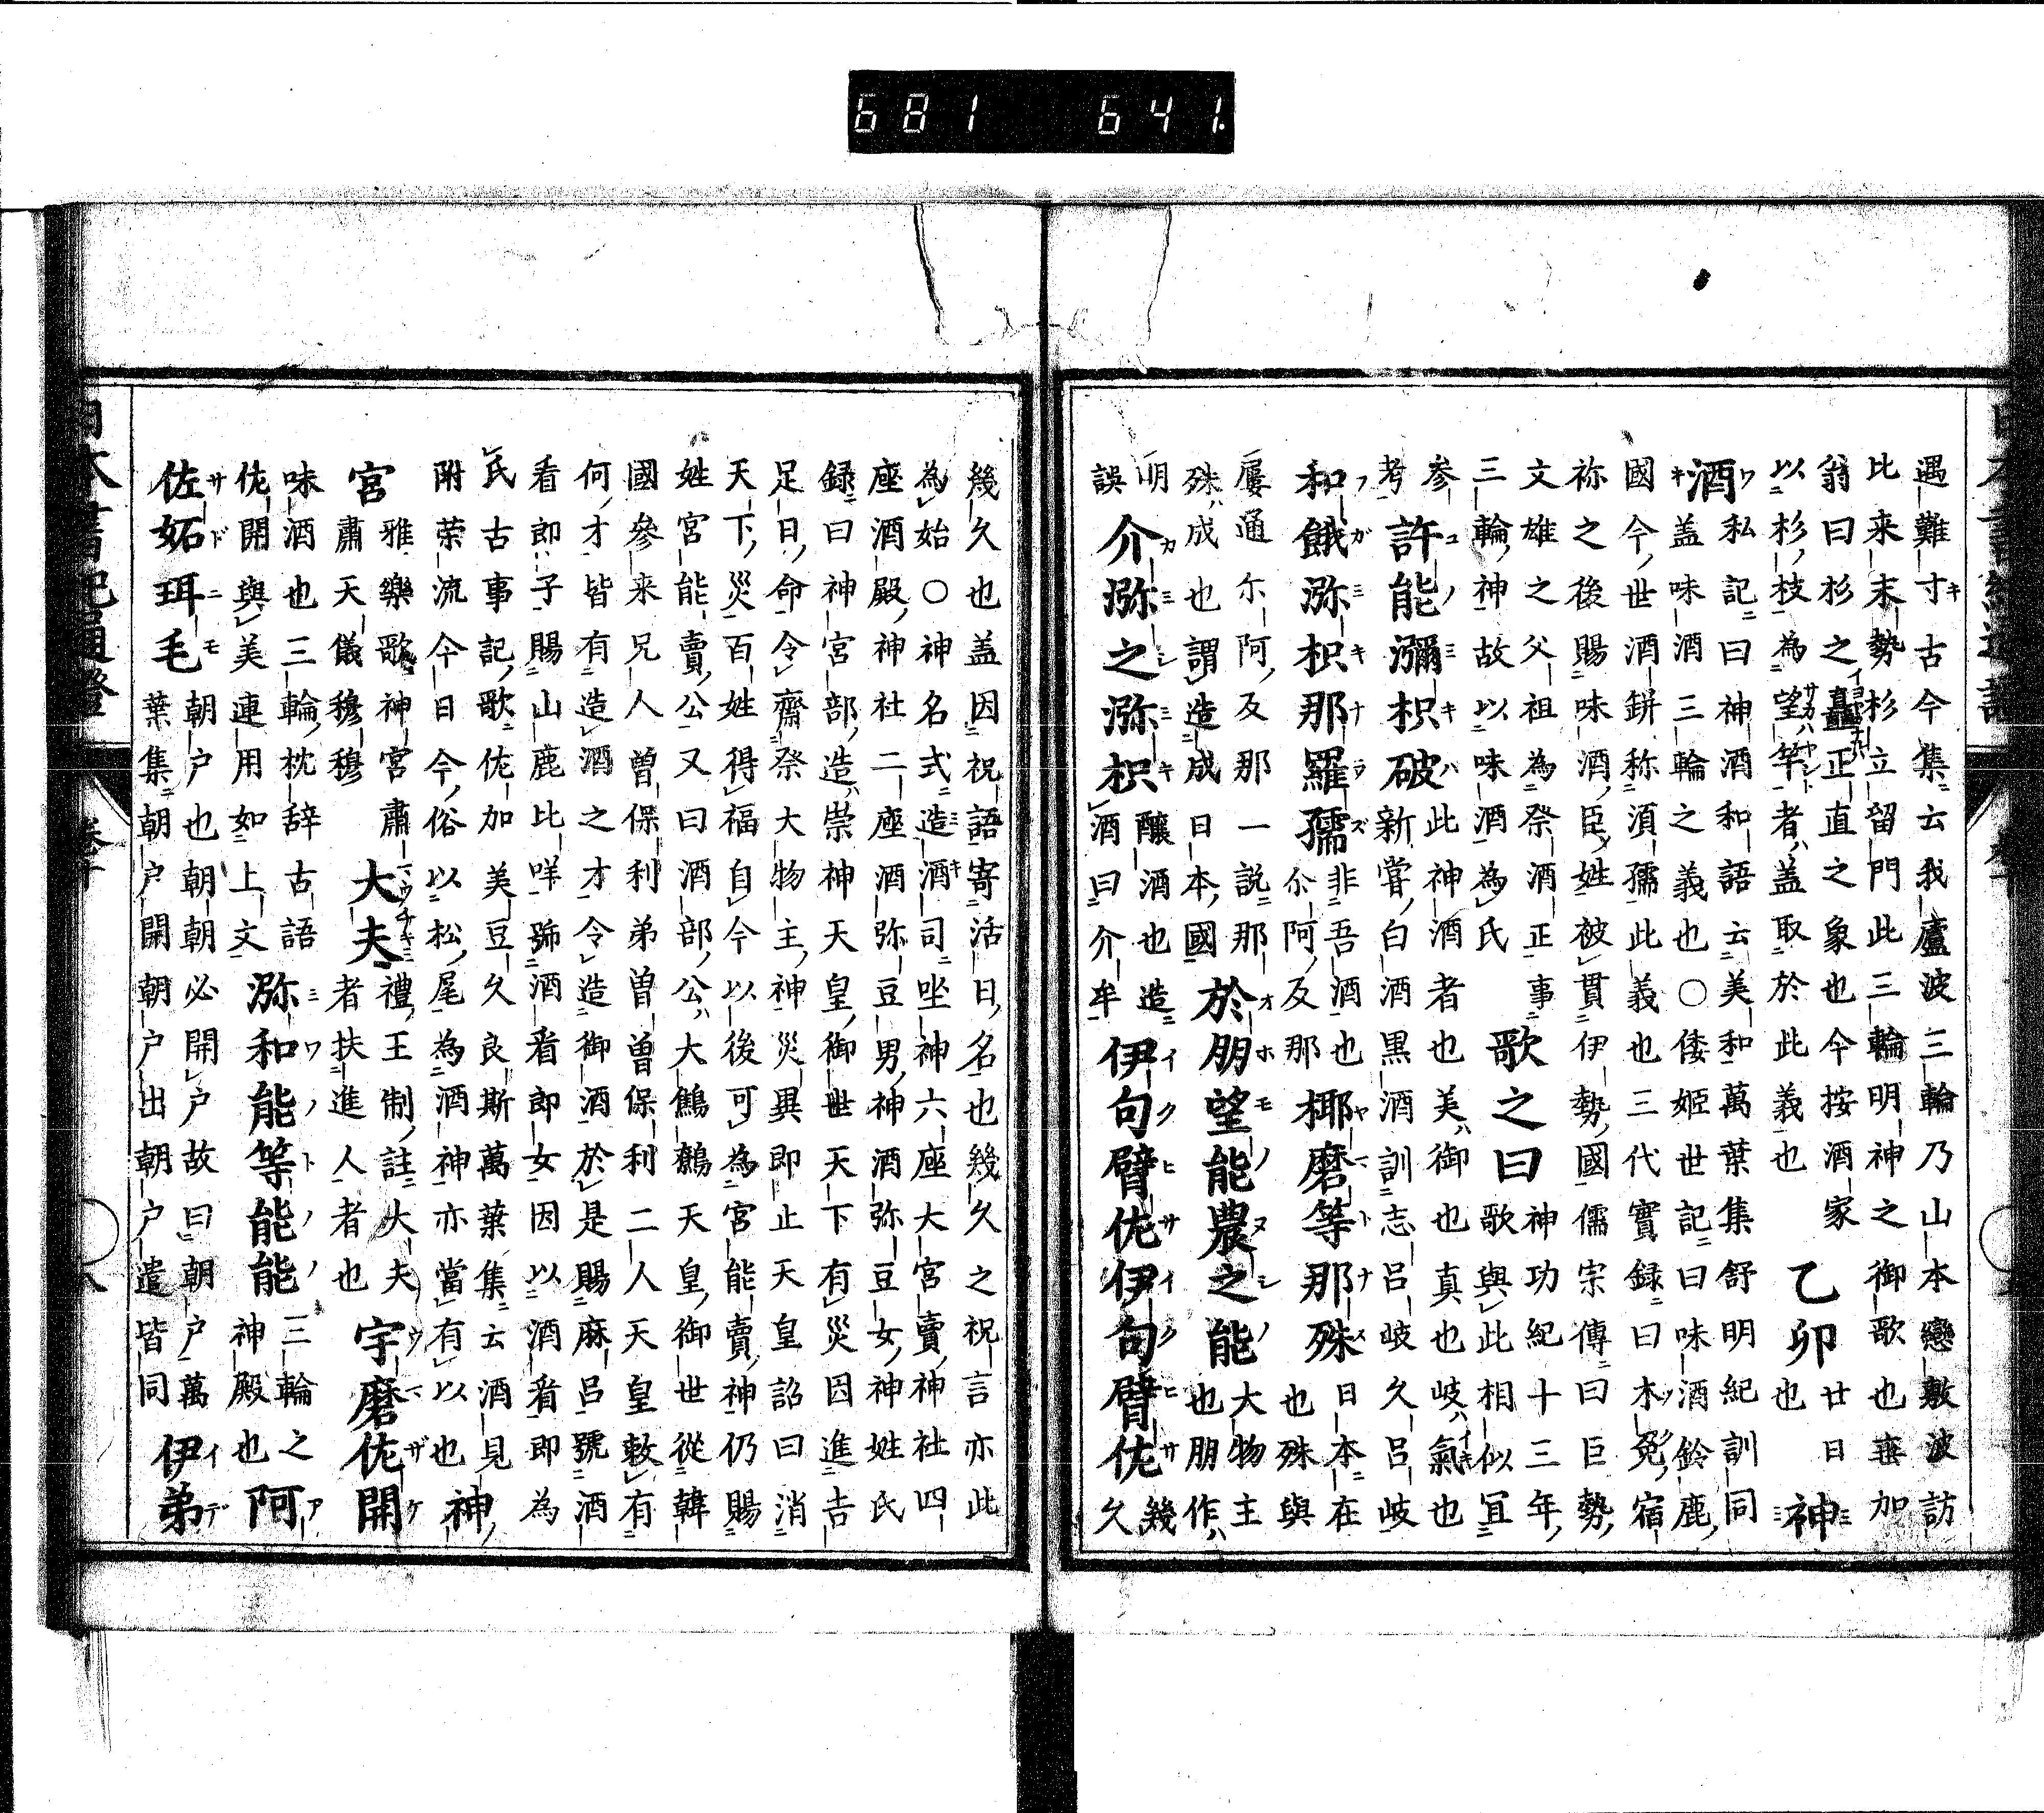 遇難寸古今集云我廬波三輪乃山本戀敷波訪
比来末勢杉立留門此三輪明神之御歌也垂加
翁曰杉之矗正直之象也今按酒家
以杉枝為望竿者盖取於此義也
乙卯
廿日
也
神
酒
私記曰神酒和語云美和萬葉集舒明紀訓同
盖味酒三輪之義也〇倭姬世記曰味酒鈴鹿
國今世酒鉼称湏孺此義也三代實録曰木免宿
祢之後賜味酒臣姓被貫伊勢國儒宗傳曰巨勢
文雄之父祖為祭酒正事
三輪神故以味酒為氏
歌之曰
神功紀十三年
歌與此相似冝
参
考
許能瀰枳破
此神酒者也美御也真也岐氣也
新嘗白酒黒酒訓志呂岐久呂岐
和餓弥枳那羅孺
非吾酒也
尒阿反那
椰磨等那殊
日本在
也殊與
屢通尓阿反那一說那
殊成也謂造成日本國
於朋望能農之能
大物主
也朋作
明
誤
介弥之弥枳
醸酒也造
酒曰介牟
伊句臂佐伊句臂佐
幾
久
幾久也盖因祝語寄活日名也幾久之祝言亦此
為始〇神名式造酒司坐神六座大宮賣神社四
座酒殿神社二座酒弥豆男神酒弥豆女神姓氏
録曰神宮部造崇神天皇御世天下有災因進吉
足日命令齋祭大物主神災異即止天皇詔曰消
天下災百姓得福自今以後可為宮能賣神仍賜
姓宮能賣公又曰酒部公大鷦鷯天皇御世從韓
國參来兄人曽保利弟曽曽保利二人天皇敕有
何才皆有造酒之才令造御酒於是賜麻呂號酒
看即子賜山鹿比咩號酒看即女因以酒看即為
氏古事記歌佐加美豆久良斯萬葉集云酒見
附荣流今日今俗以松尾為酒神亦當有以也
神
宮
雅樂歌神宮肅
肅天儀穆穆
大夫
禮王制註大夫
者扶進人者也
宇磨佐開
味酒也三輪枕辞古語
佐開與美連用如上文
弥和能等能能
三輪之
神殿也
阿
佐妬珥毛
朝户也朝朝必開户故曰朝户萬
葉集朝户開朝户出朝户遣皆同
伊弟
日本書紀通證
681 641.